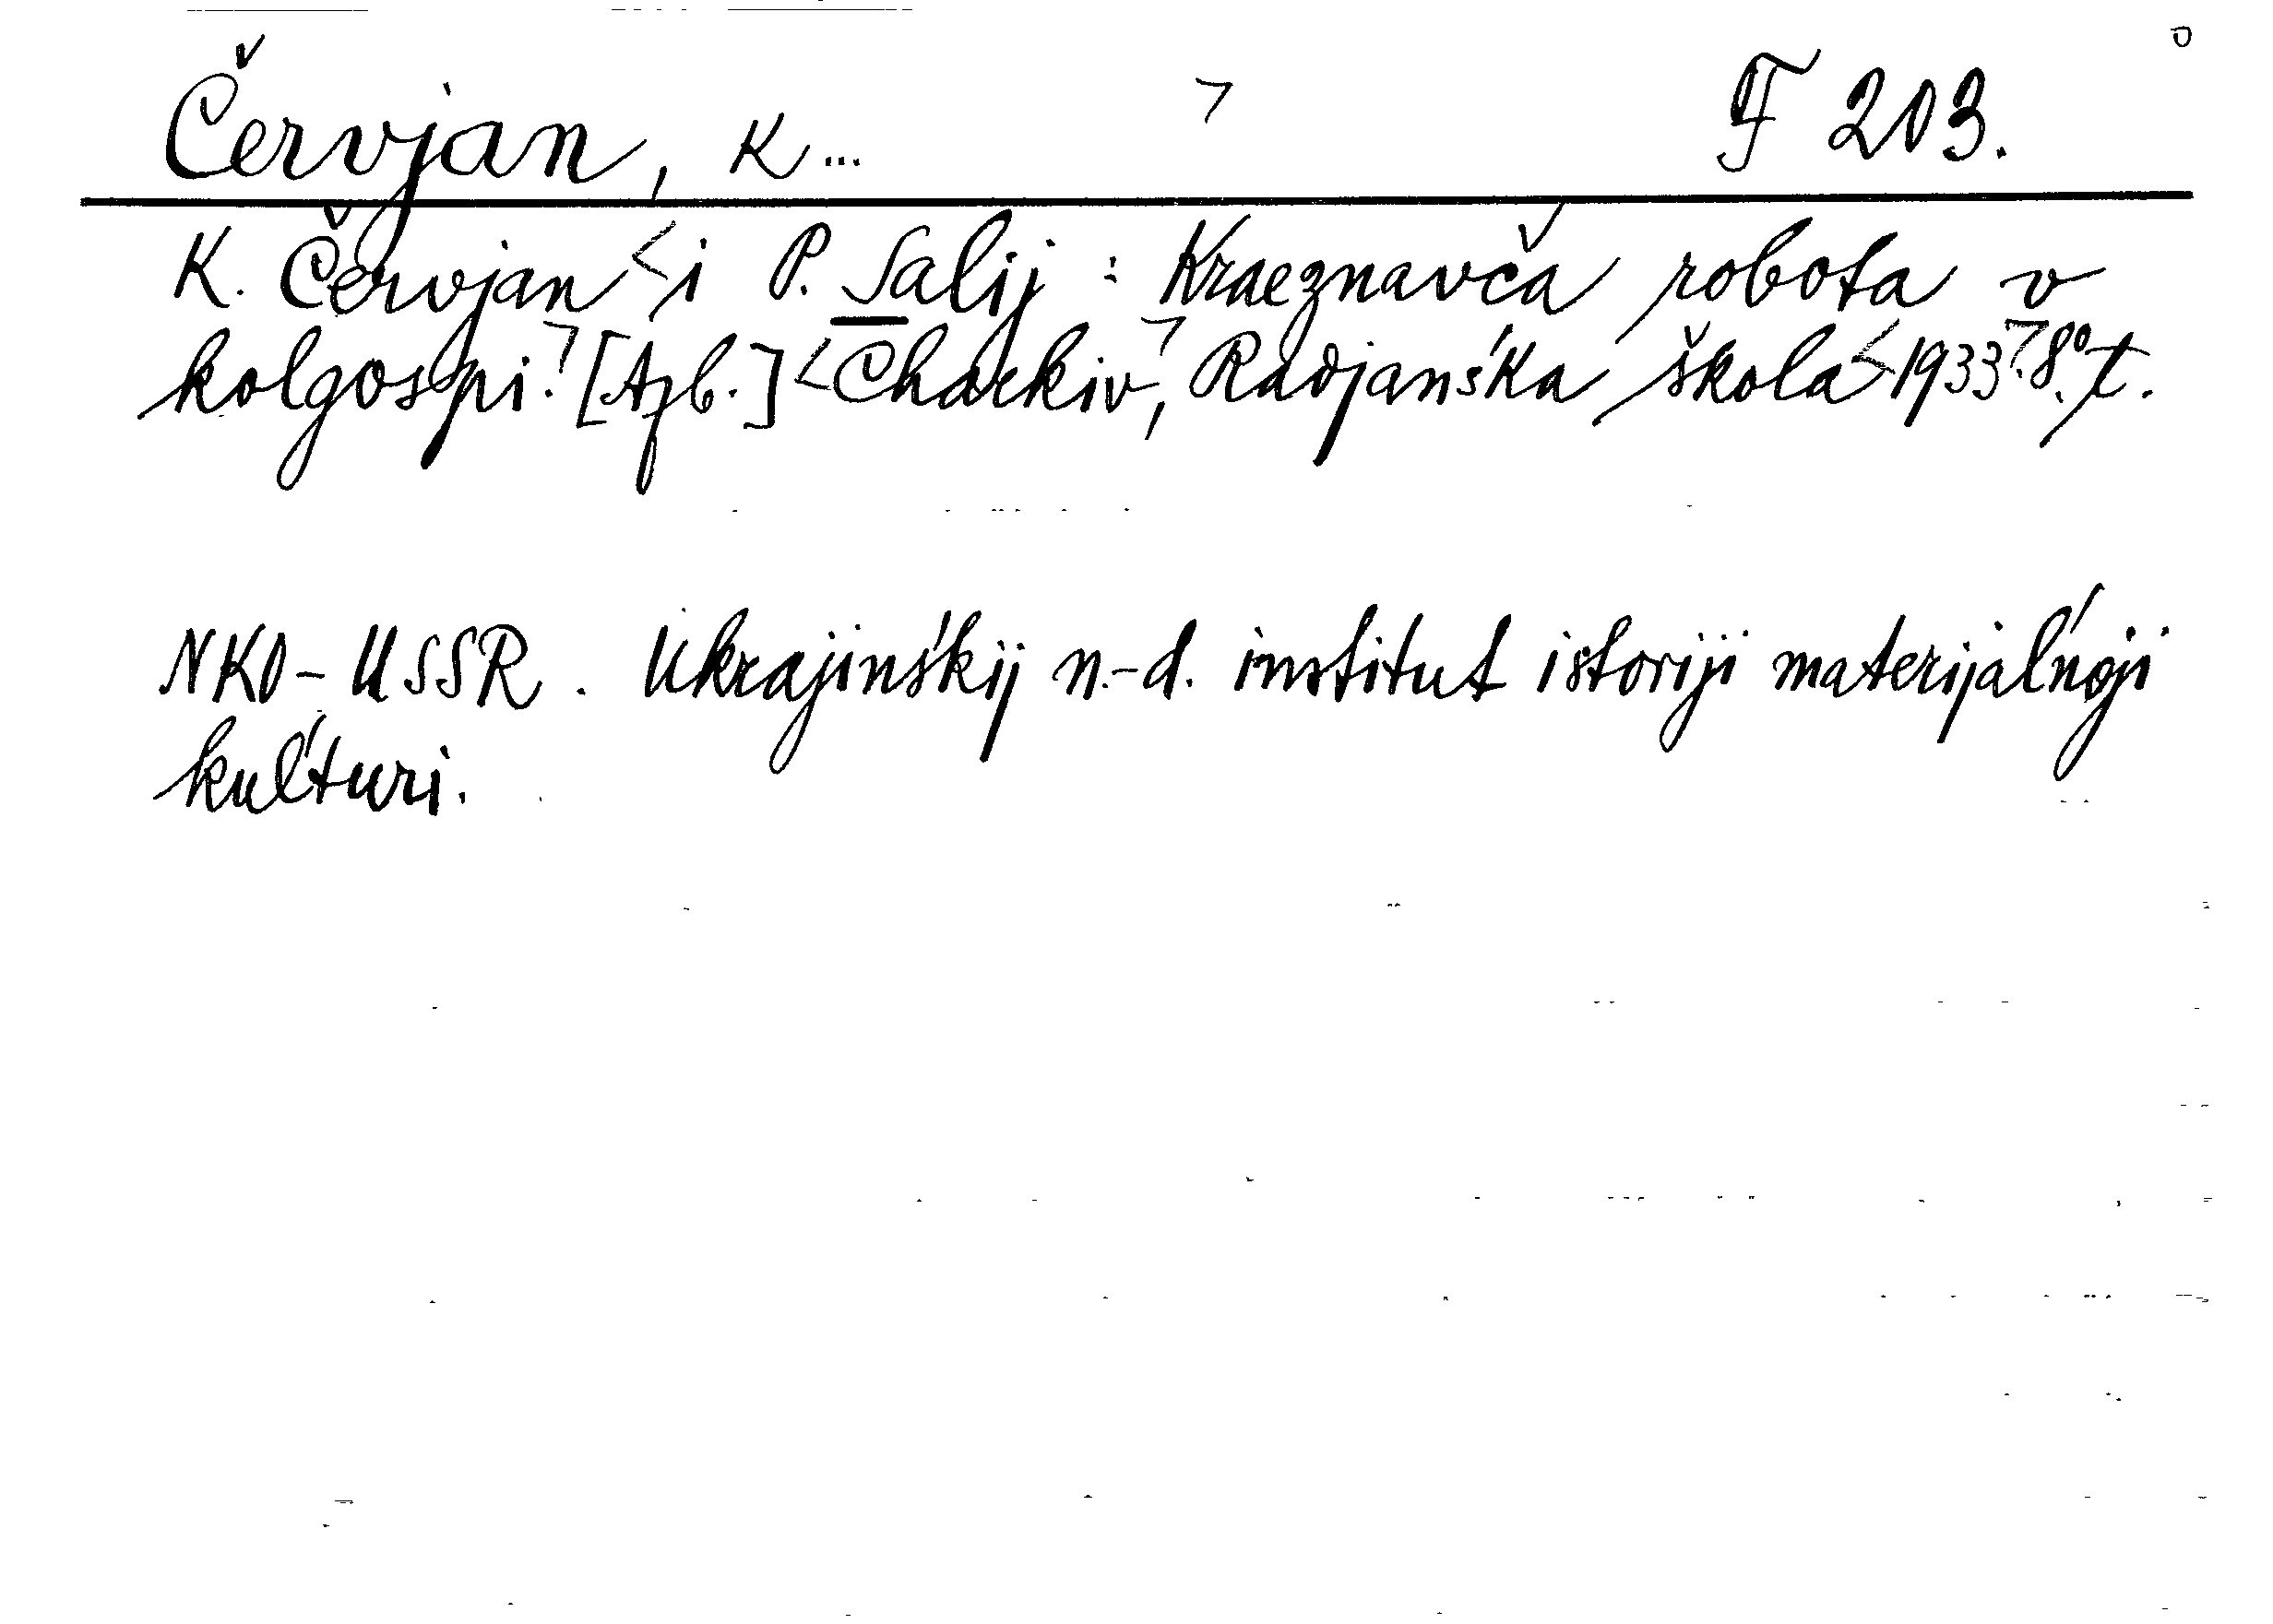 Červjan, K... F 203.
K. Červjan i P. Salij: Kraeznavča robota v
kolgospi. [Azb.] Charkiv, Radjanśka škola 1933. 8°. t.
NKO-USSR. Ukrajinśkij n.-d. institut istoriji materijalńoji
kulťuri.